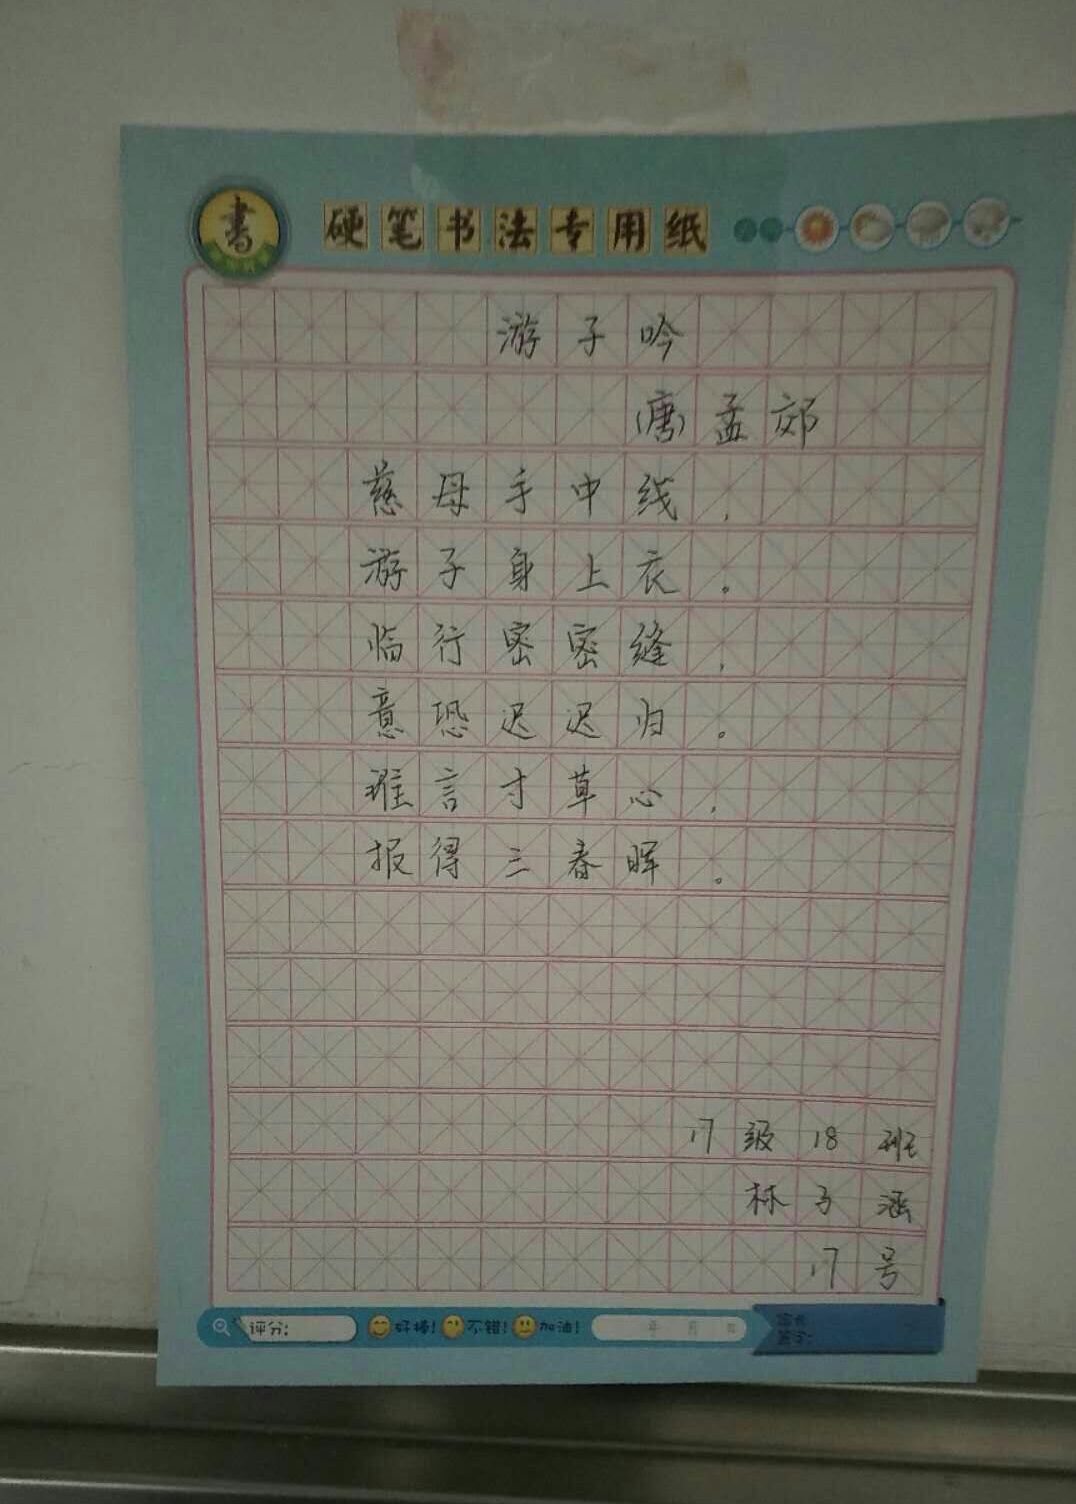 書
硬笔书法专用纸
游子吟
(唐)孟郊
慈母手中线，
游子身上衣。
临行密密缝，
意恐迟迟归。
难言寸草心，
报得三春晖。
17级18班
林子涵
17号
评分: 好棒! 不错! 加油! 年 月 日 家长签字: